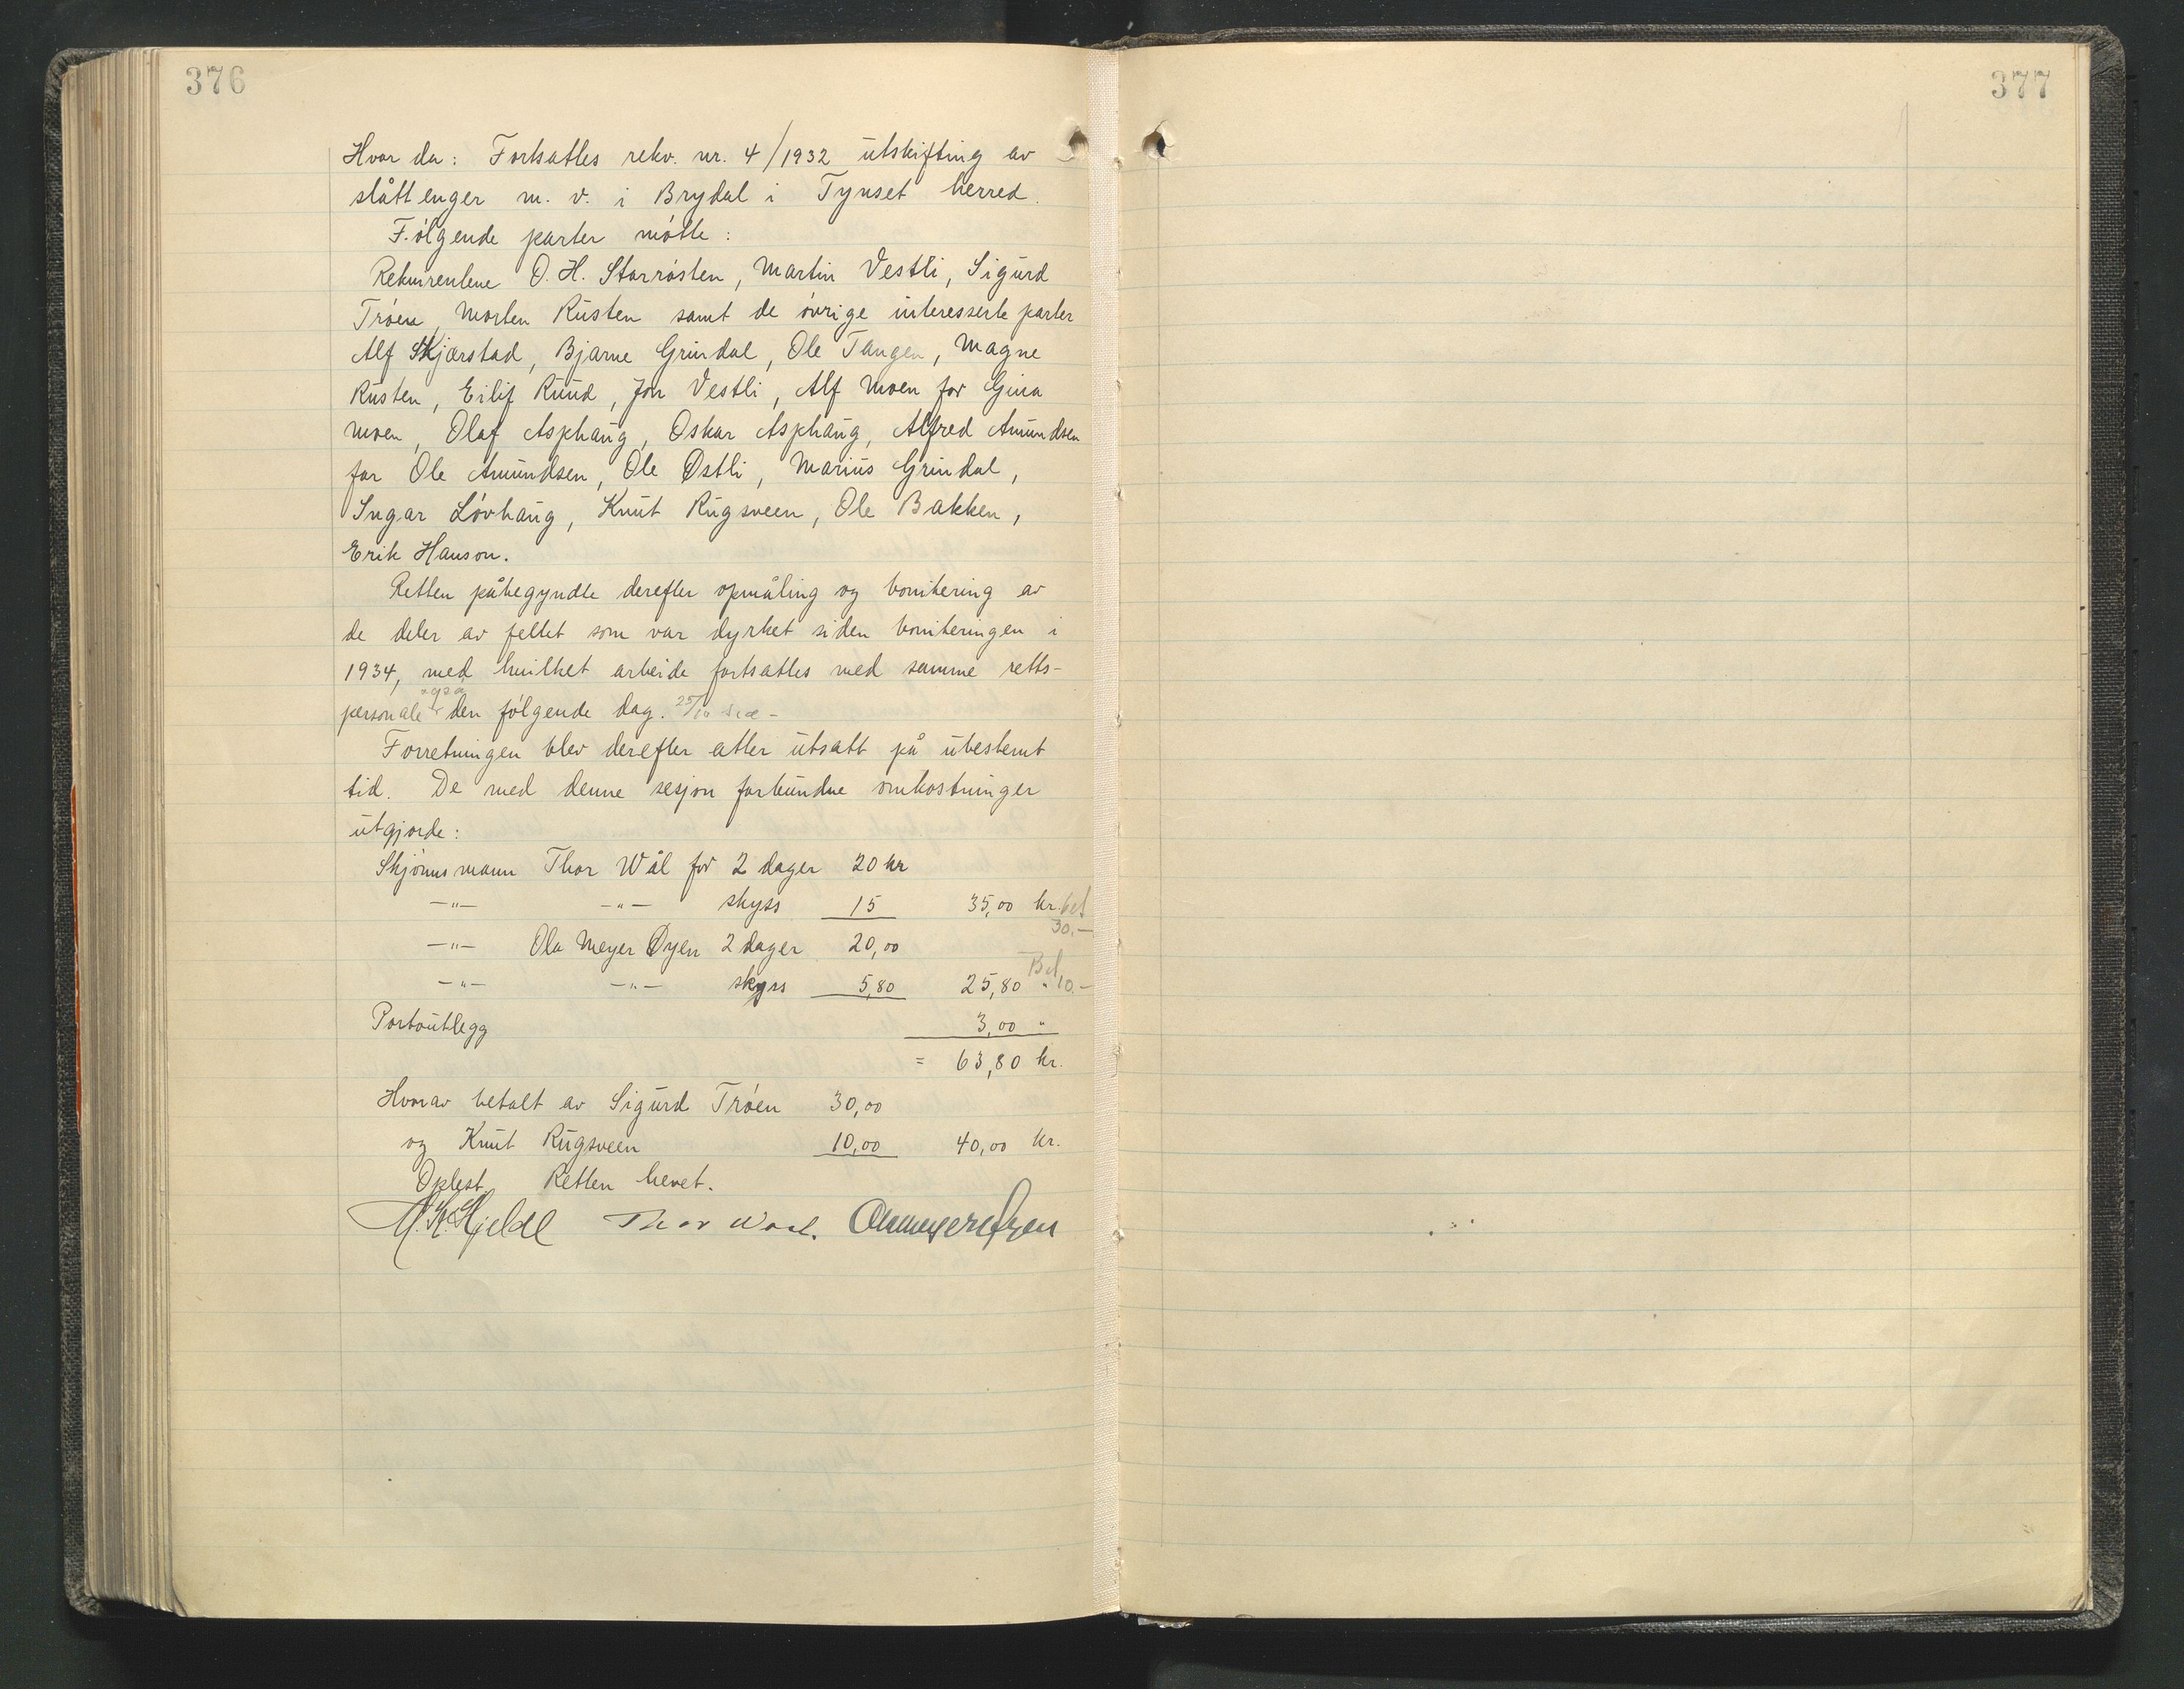 376
377
Hvor da: Fortsattes rekv. nr. 4/1932 utskifting av
slåttenger m. v. i Brydal i Tynset herred.
Følgende parter møtte:
Rekvirentene O. H. Storrøsten, Martin Vestli, Sigurd
Trøen, Morten Rusten samt de øvrige interesserte parter
Alf Skjærstad, Bjarne Grindal, Ole Tangen, Magne
Rusten, Eilif Ruud, Jon Vestli, Alf Moen for Gina
Moen, Olaf Asphaug, Oskar Asphaug, Alfred Amundsen
for Ole Amundsen, Ole Østli, Marius Grindal,
Ingar Løvhaug, Knut Rugsveen, Ole Bakken,
Erik Hanson.
Retten påbegyndte derefter opmåling og bonitering av
de deler av feltet som var dyrket siden boniteringen i
1934, med hvilket arbeide fortsattes med samme retts-
også
personale den følgende dag. 25/10
Forretningen blev derefter atter utsatt på ubestemt
tid. De med denne sesjon forbundne omkostninger
utgjorde:
Skjønnsmann Thor Wål for 2 dager 20 kr
—"— —"— skyss 15 35,00 kr. bet
30.—
—"— Ola Meyer Øyen 2 dager 20,00
—"— —"— skyss 5,80 25,80 " Bet 10.—
Portoutlegg 3,00 "
= 63,80 kr.
Hvorav betalt av Sigurd Trøen 30,00
og Knut Rugsveen 10,00 40,00 kr.
Oplest. Retten hevet.
Thor Waal. Olameyerøyen